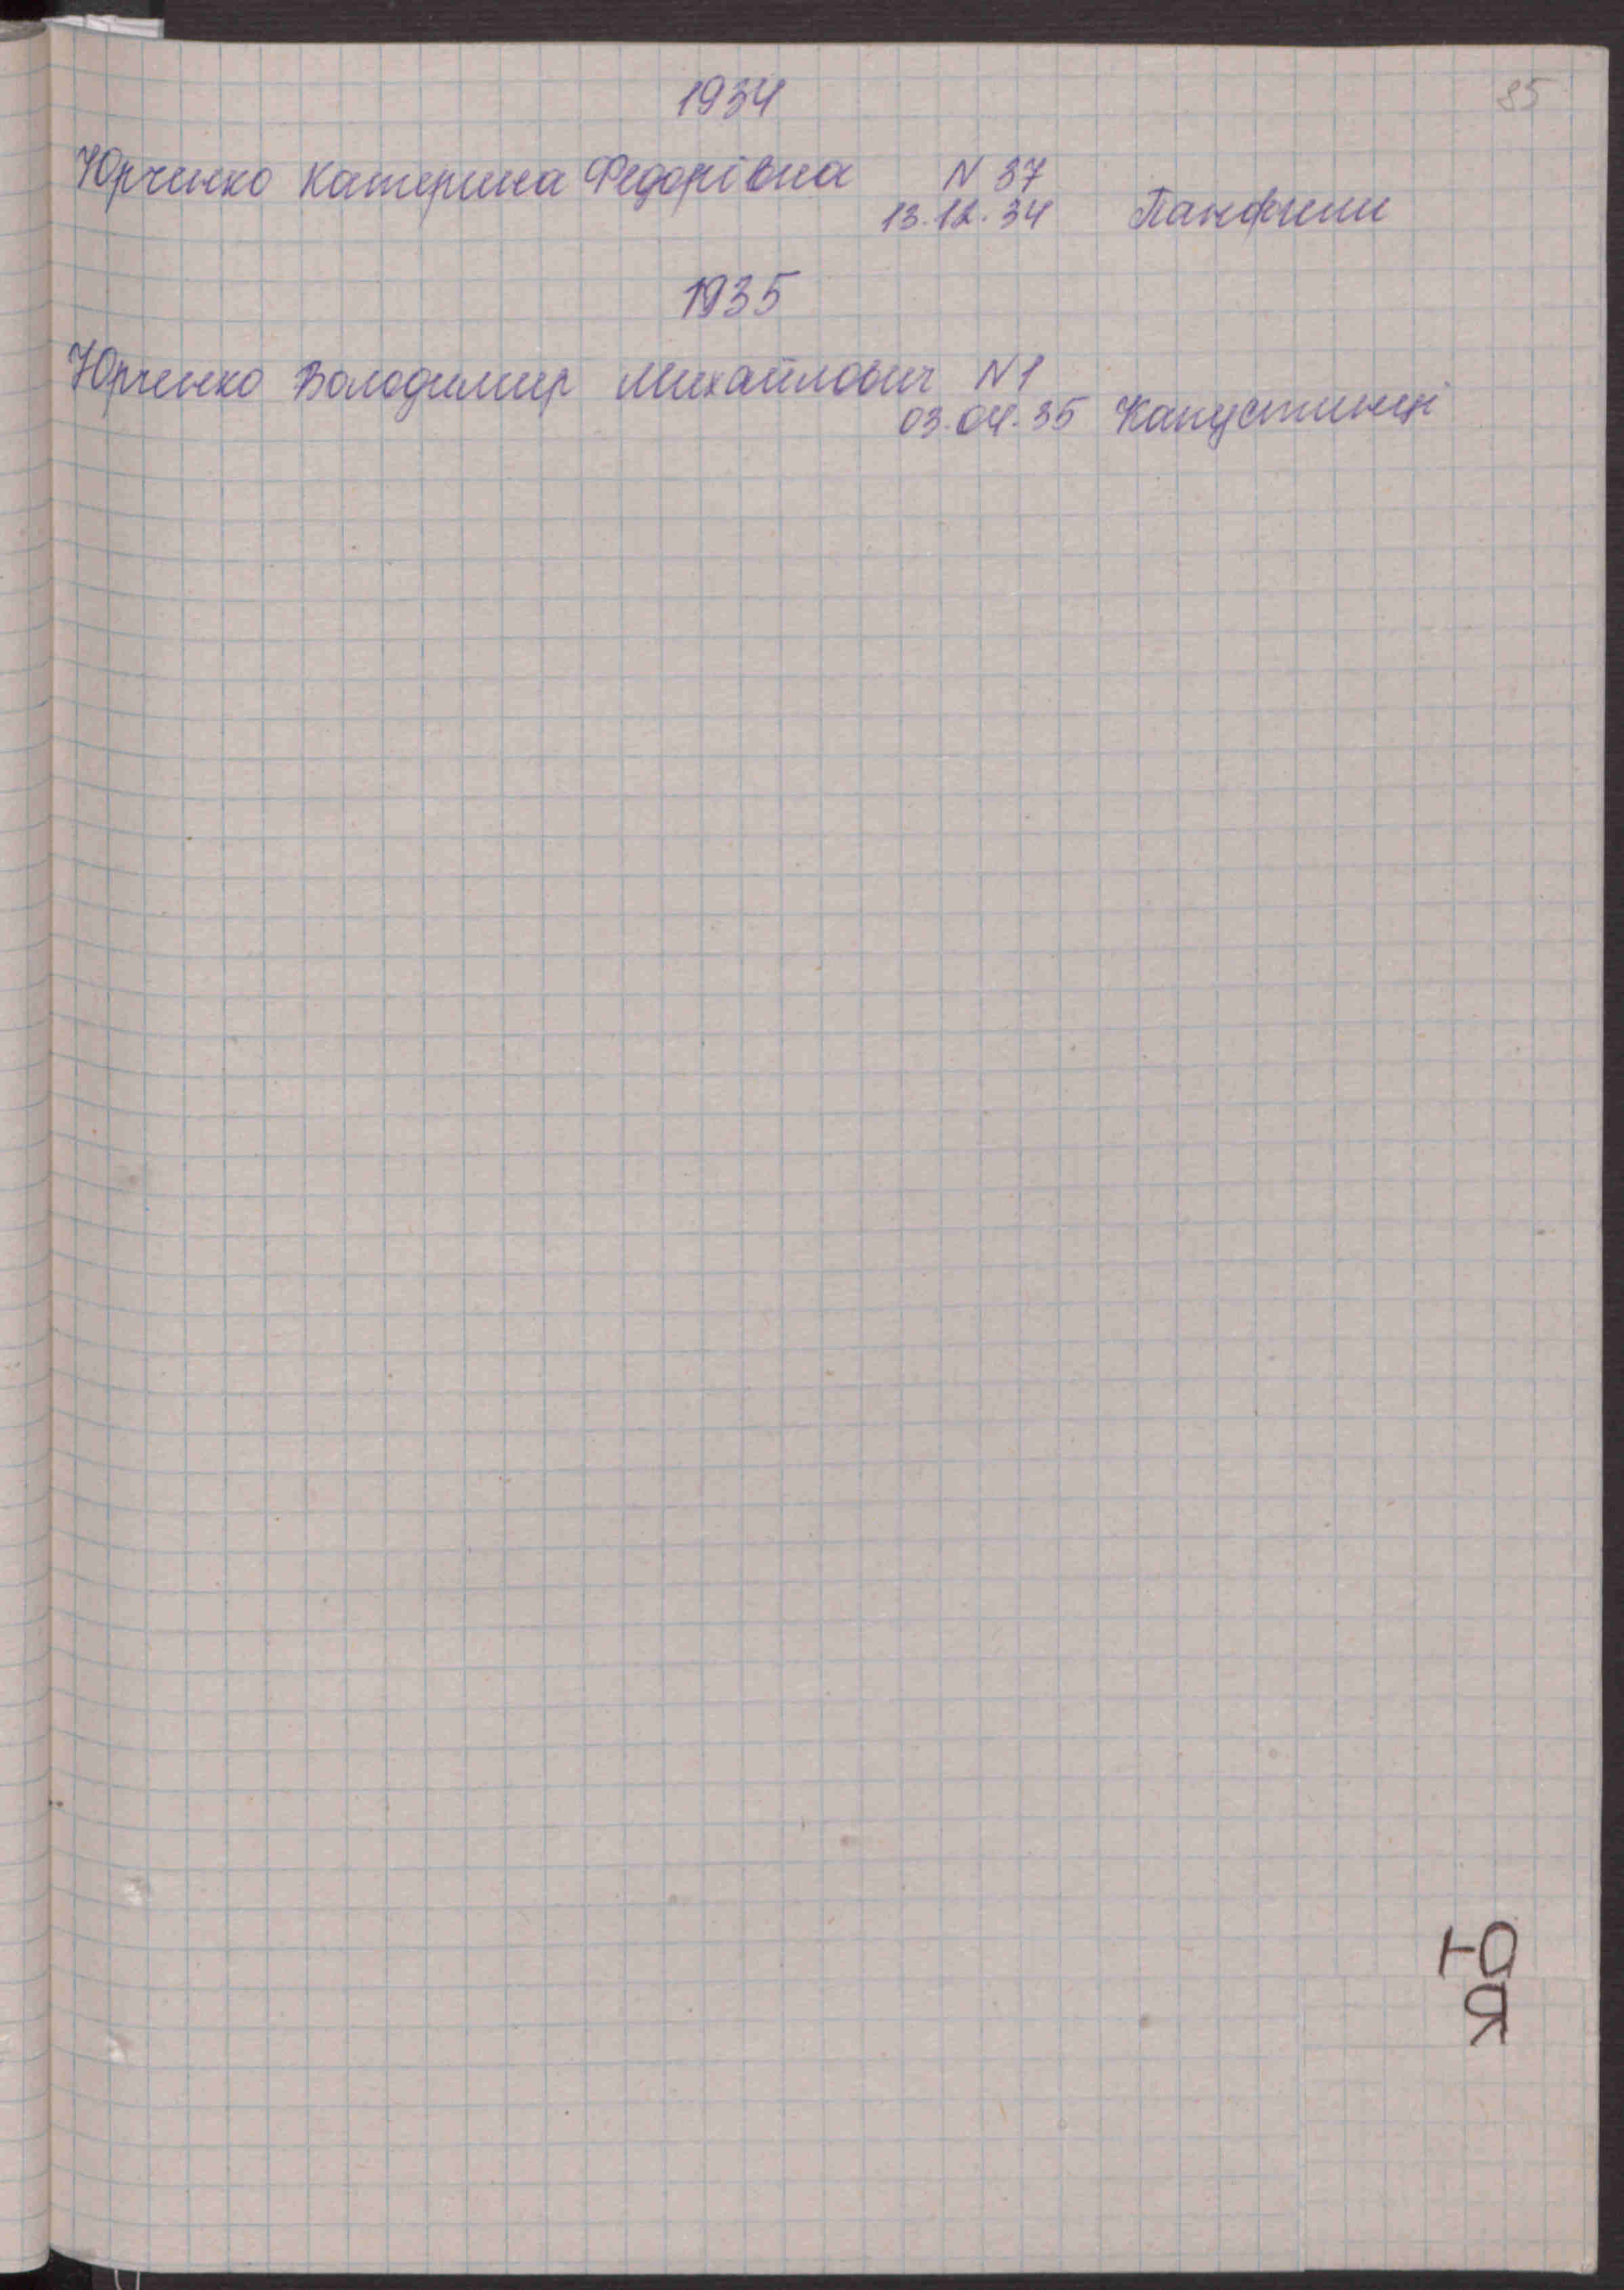 85
1934
Юрченко Катерина Федорівна N 37
13.12.34 Панфили
1935
Юрченко Володимир Михайлович N 1
03.04.35 Капустинці
Ю
Я